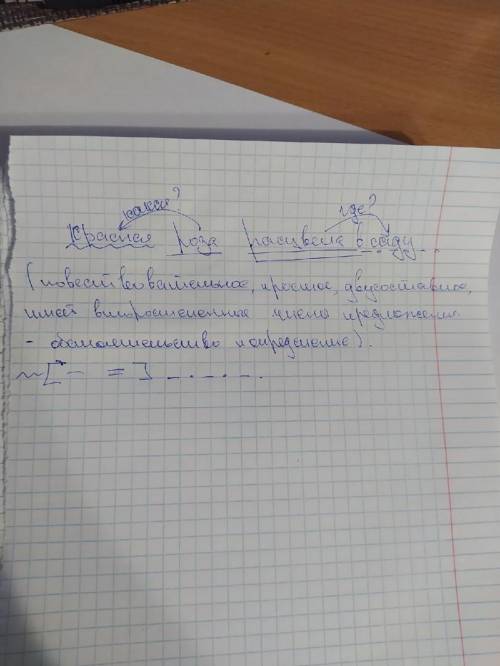 какая? где?
Красная роза расцвела в саду.
(повествовательное, простое, двусоставное,
имеет второстепенные члены предложения
- обстоятельство и определение).
~ [ - = ] _ . _ . _ .